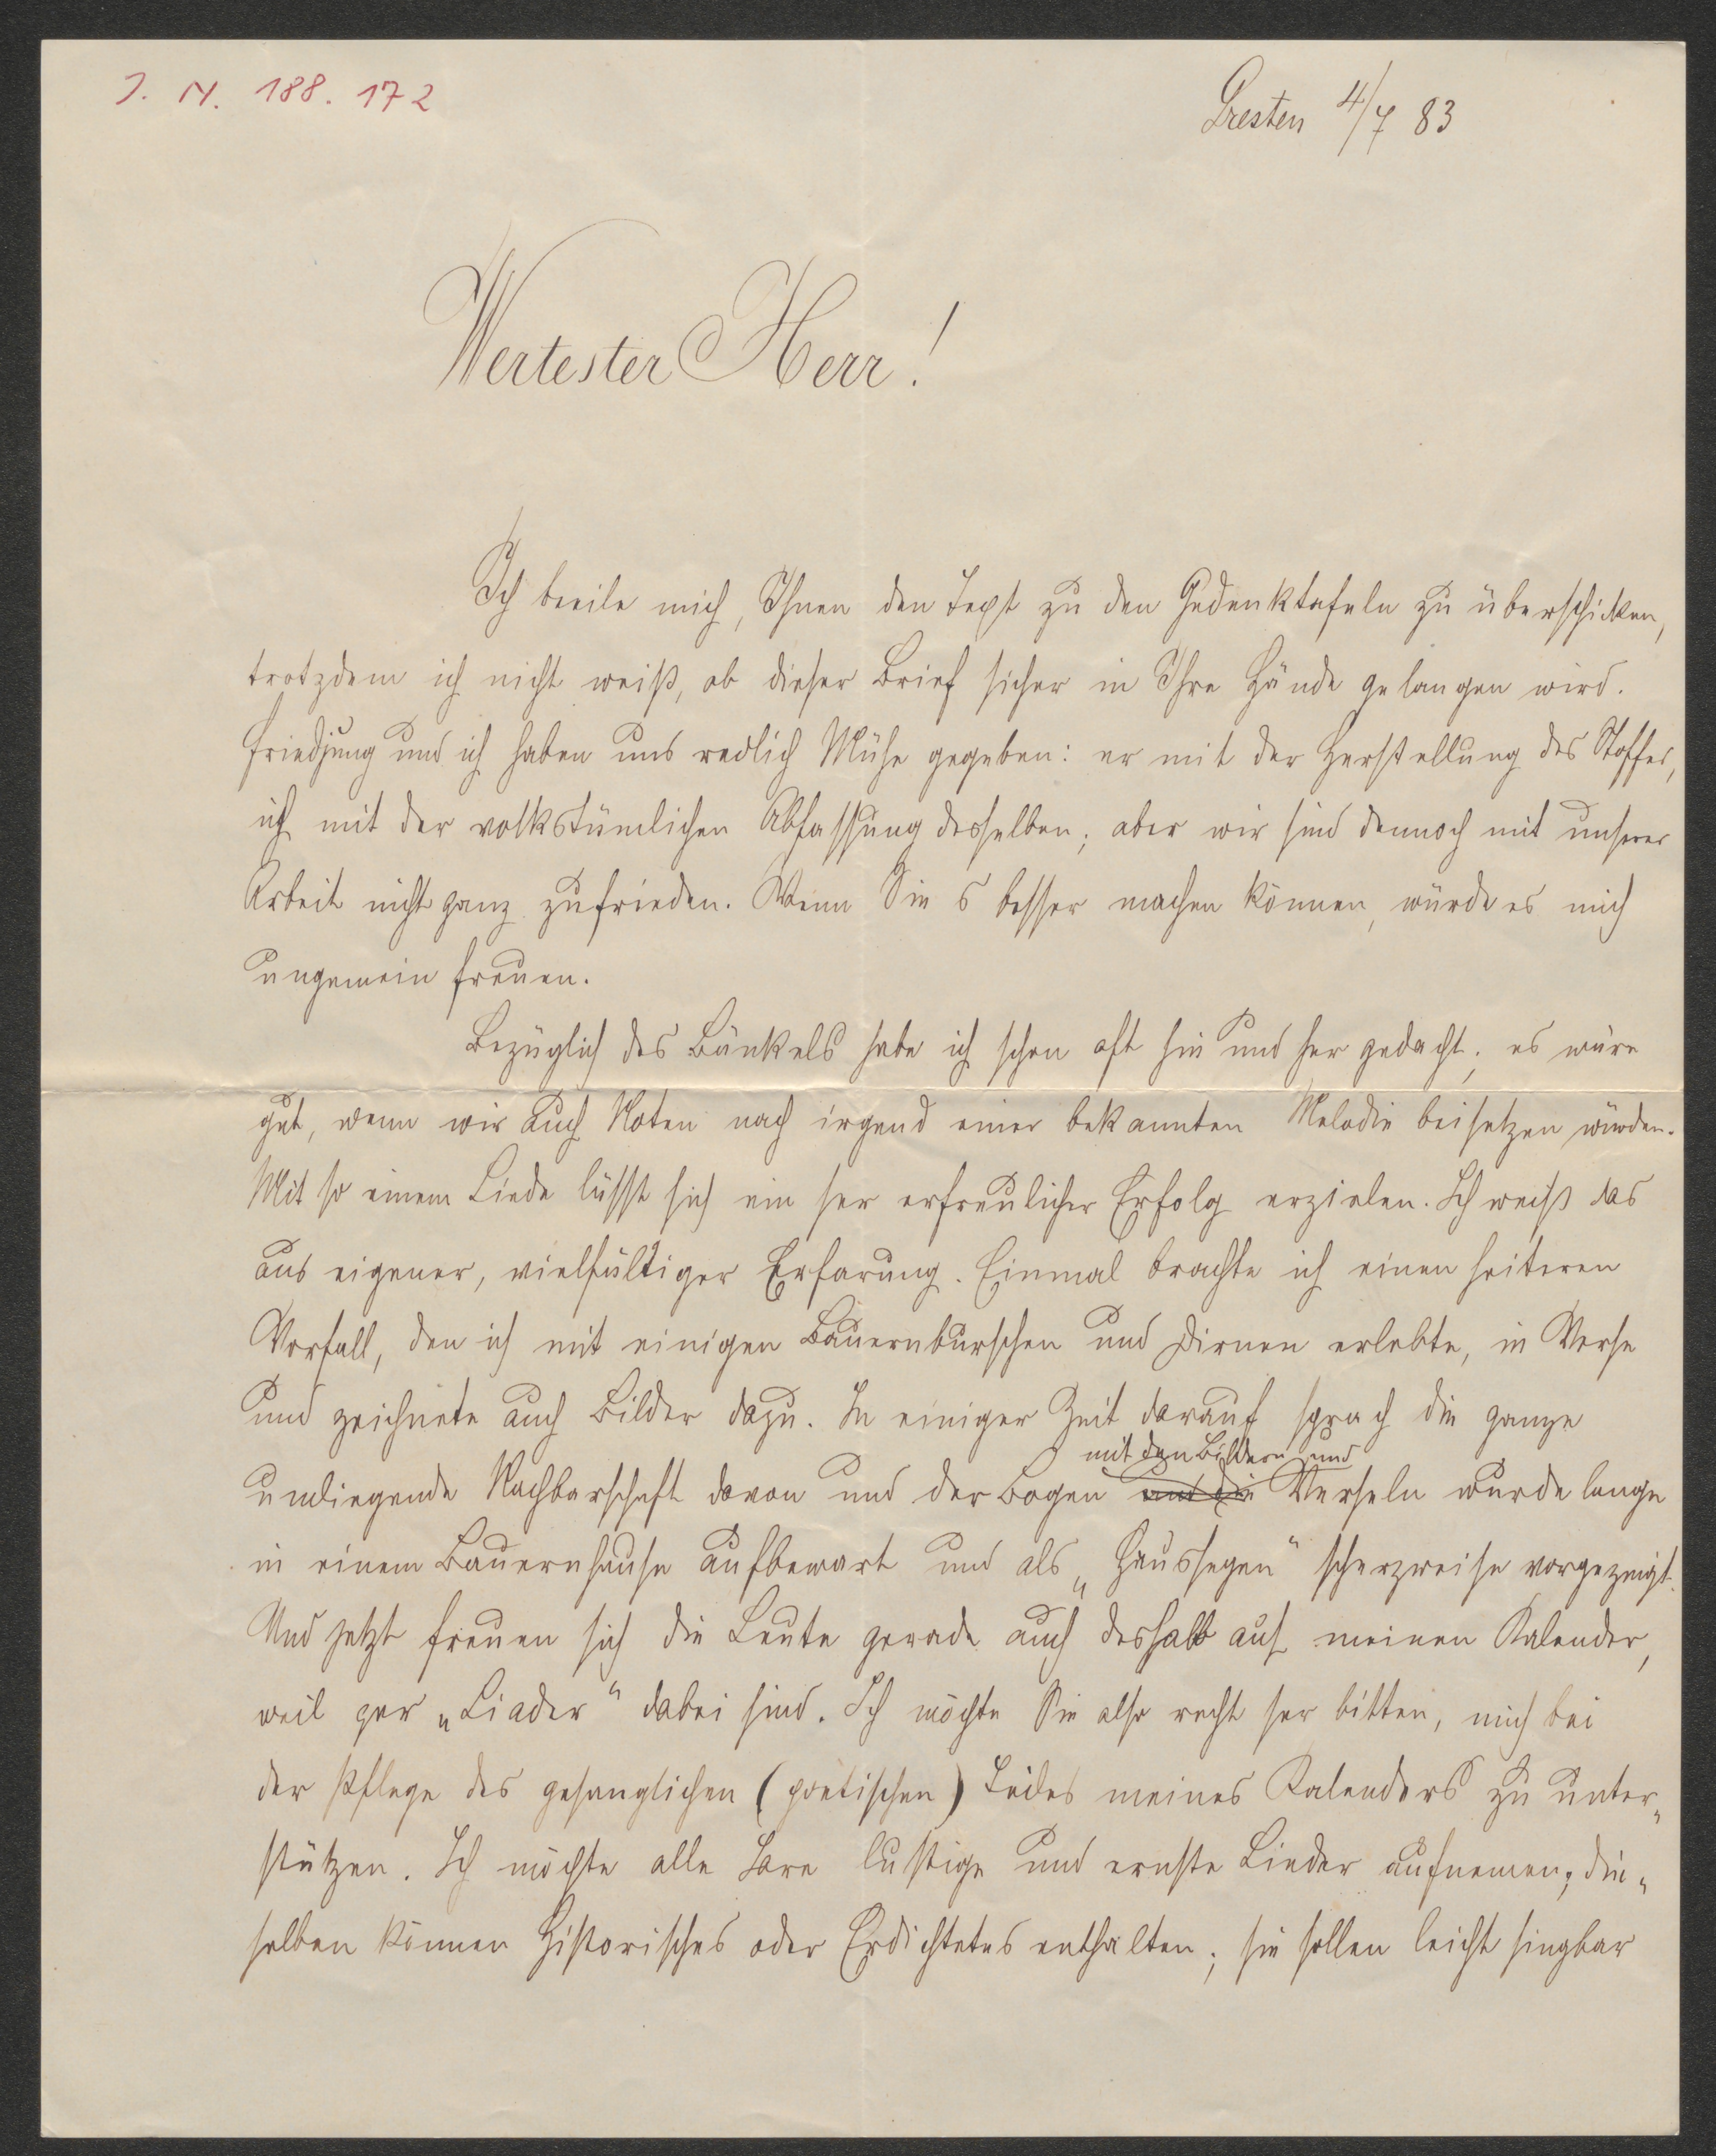 J. N. 188.172
Gresten 4/7 83
Wertester Herr!
Ich beeile mich, Ihnen den Text zu den Gedenktafeln zu überschicken,
trotzdem ich nicht weiß, ob dieser Brief sicher in Ihre Hände gelangen wird.
Friedjung und ich haben uns redlich Mühe gegeben: er mit der Herstellung des Stoffes,
ich mit der volkstümlichen Abfassung desselben; aber wir sind dennoch mit unserer
Arbeit nicht ganz zufrieden. Wenn Sie s besser machen können, würde es mich
ungemein freuen.
Bezüglich des Bänkels habe ich schon oft hin und her gedacht; es wäre
gut, wenn wir auch Noten nach irgend einer bekannten Melodie beisetzen würden.
Mit so einem Liede lässt sich ein ser erfreulicher Erfolg erzielen. Ich weiß das
aus eigener, vielfältiger Erfarung. Einmal brachte ich einen heiteren
Vorfall, den ich mit einigen Bauernburschen und Dirnen erlebte, in Verse
und zeichnete auch Bilder dazu. In einiger Zeit darauf sprach die ganze
mit den Bildern und
umliegende Nachbarschaft davon und der Bogen und die Verseln wurde lange
in einem Bauernhause aufbewart und als „Haussegen“ scherzweise vorgezeigt.
Und jetzt freuen sich die Leute gerade auch deshalb auf meinen Kalender,
weil gar „Liader“ dabei sind. Ich möchte Sie also recht ser bitten, mich bei
der Pflege des gesanglichen (poetischen) Teiles meines Kalenders zu unter„
stützen. Ich möchte alle Jare lustige und ernste Lieder aufnemen; die„
selben können Historisches oder Erdichtetes enthalten; sie sollen leicht singbar